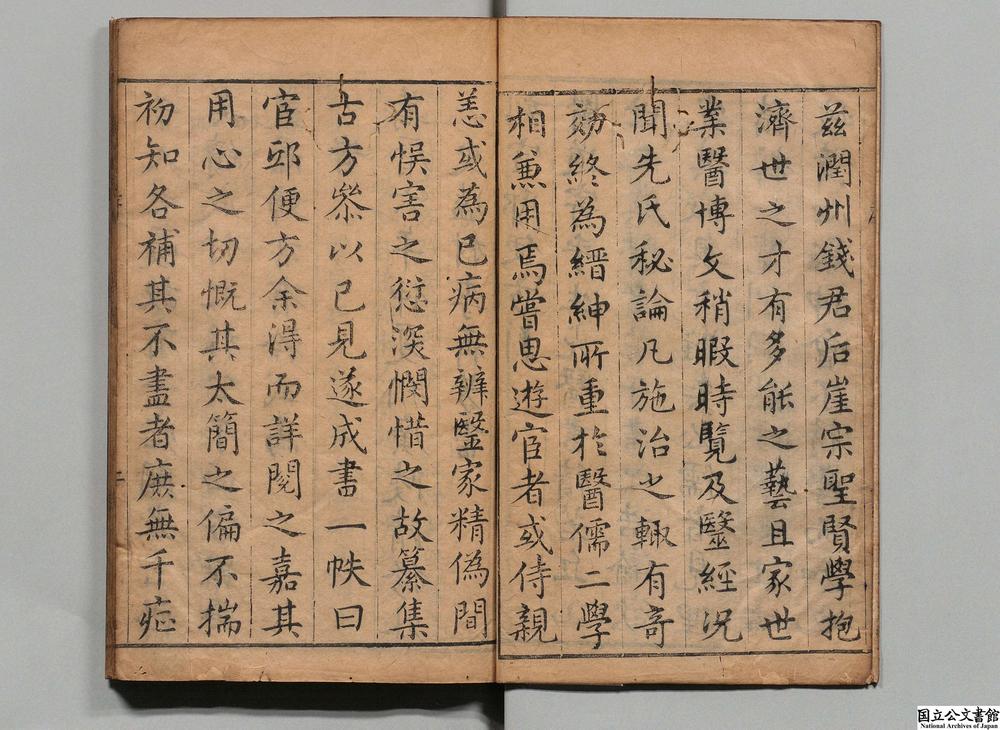 茲潤州錢君后崖宗聖賢學抱
濟世之才有多能之藝且家世
業醫博文稍暇時覽及醫經況
聞先氏秘論凡施治之輙有奇
効終為縉紳所重於醫儒二學
相兼用焉嘗思遊宦者或侍親
恙或為已病無辨醫家精偽間
有悮害之愆深憫惜之故纂集
古方叅以已見遂成書一帙曰
宦邸便方余淂而詳閱之嘉其
用心之切慨其太簡之偏不揣
初知各補其不盡者庶無千疪
国立公文書館
National Archives of Japan